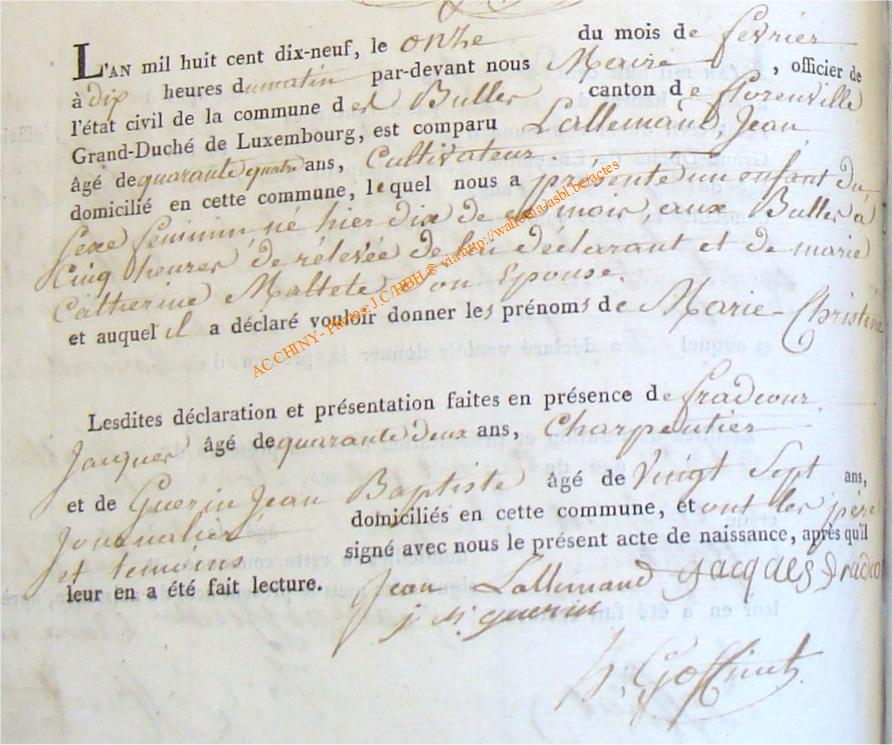 L'AN mil huit cent dix-neuf, le onze du mois de fevrier
à dix heures du matin par-devant nous Maire, officier de
l'état civil de la commune des Bulles canton de florenville
Grand-Duché de Luxembourg, est comparu Lallemand Jean
âgé de quarante quatre ans, Cultivateur
domicilié en cette commune, lequel nous a présenté un enfant du
sexe féminin né hier dix de ce mois aux Bulles à
cinq heures de rélevée de lui déclarant et de marie
Catherine Maltete son Epouse
et auquel il a déclaré vouloir donner les prénoms de Marie-Christine
AC CHINY - Photos J C HBH ® via http://wallonia-asbl.be/actes
Lesdites déclaration et présentation faites en présence de fradcour
Jacques âgé de quarante deux ans, Charpentier
et de Guerin Jean Baptiste âgé de Vingt Sept ans,
Journalier domiciliés en cette commune, et ont les père
et temoins signé avec nous le présent acte de naissance, après qu'il
leur en a été fait lecture.
Jean Lallemand Jacques fradco
j bt guerin
h. Goffinet